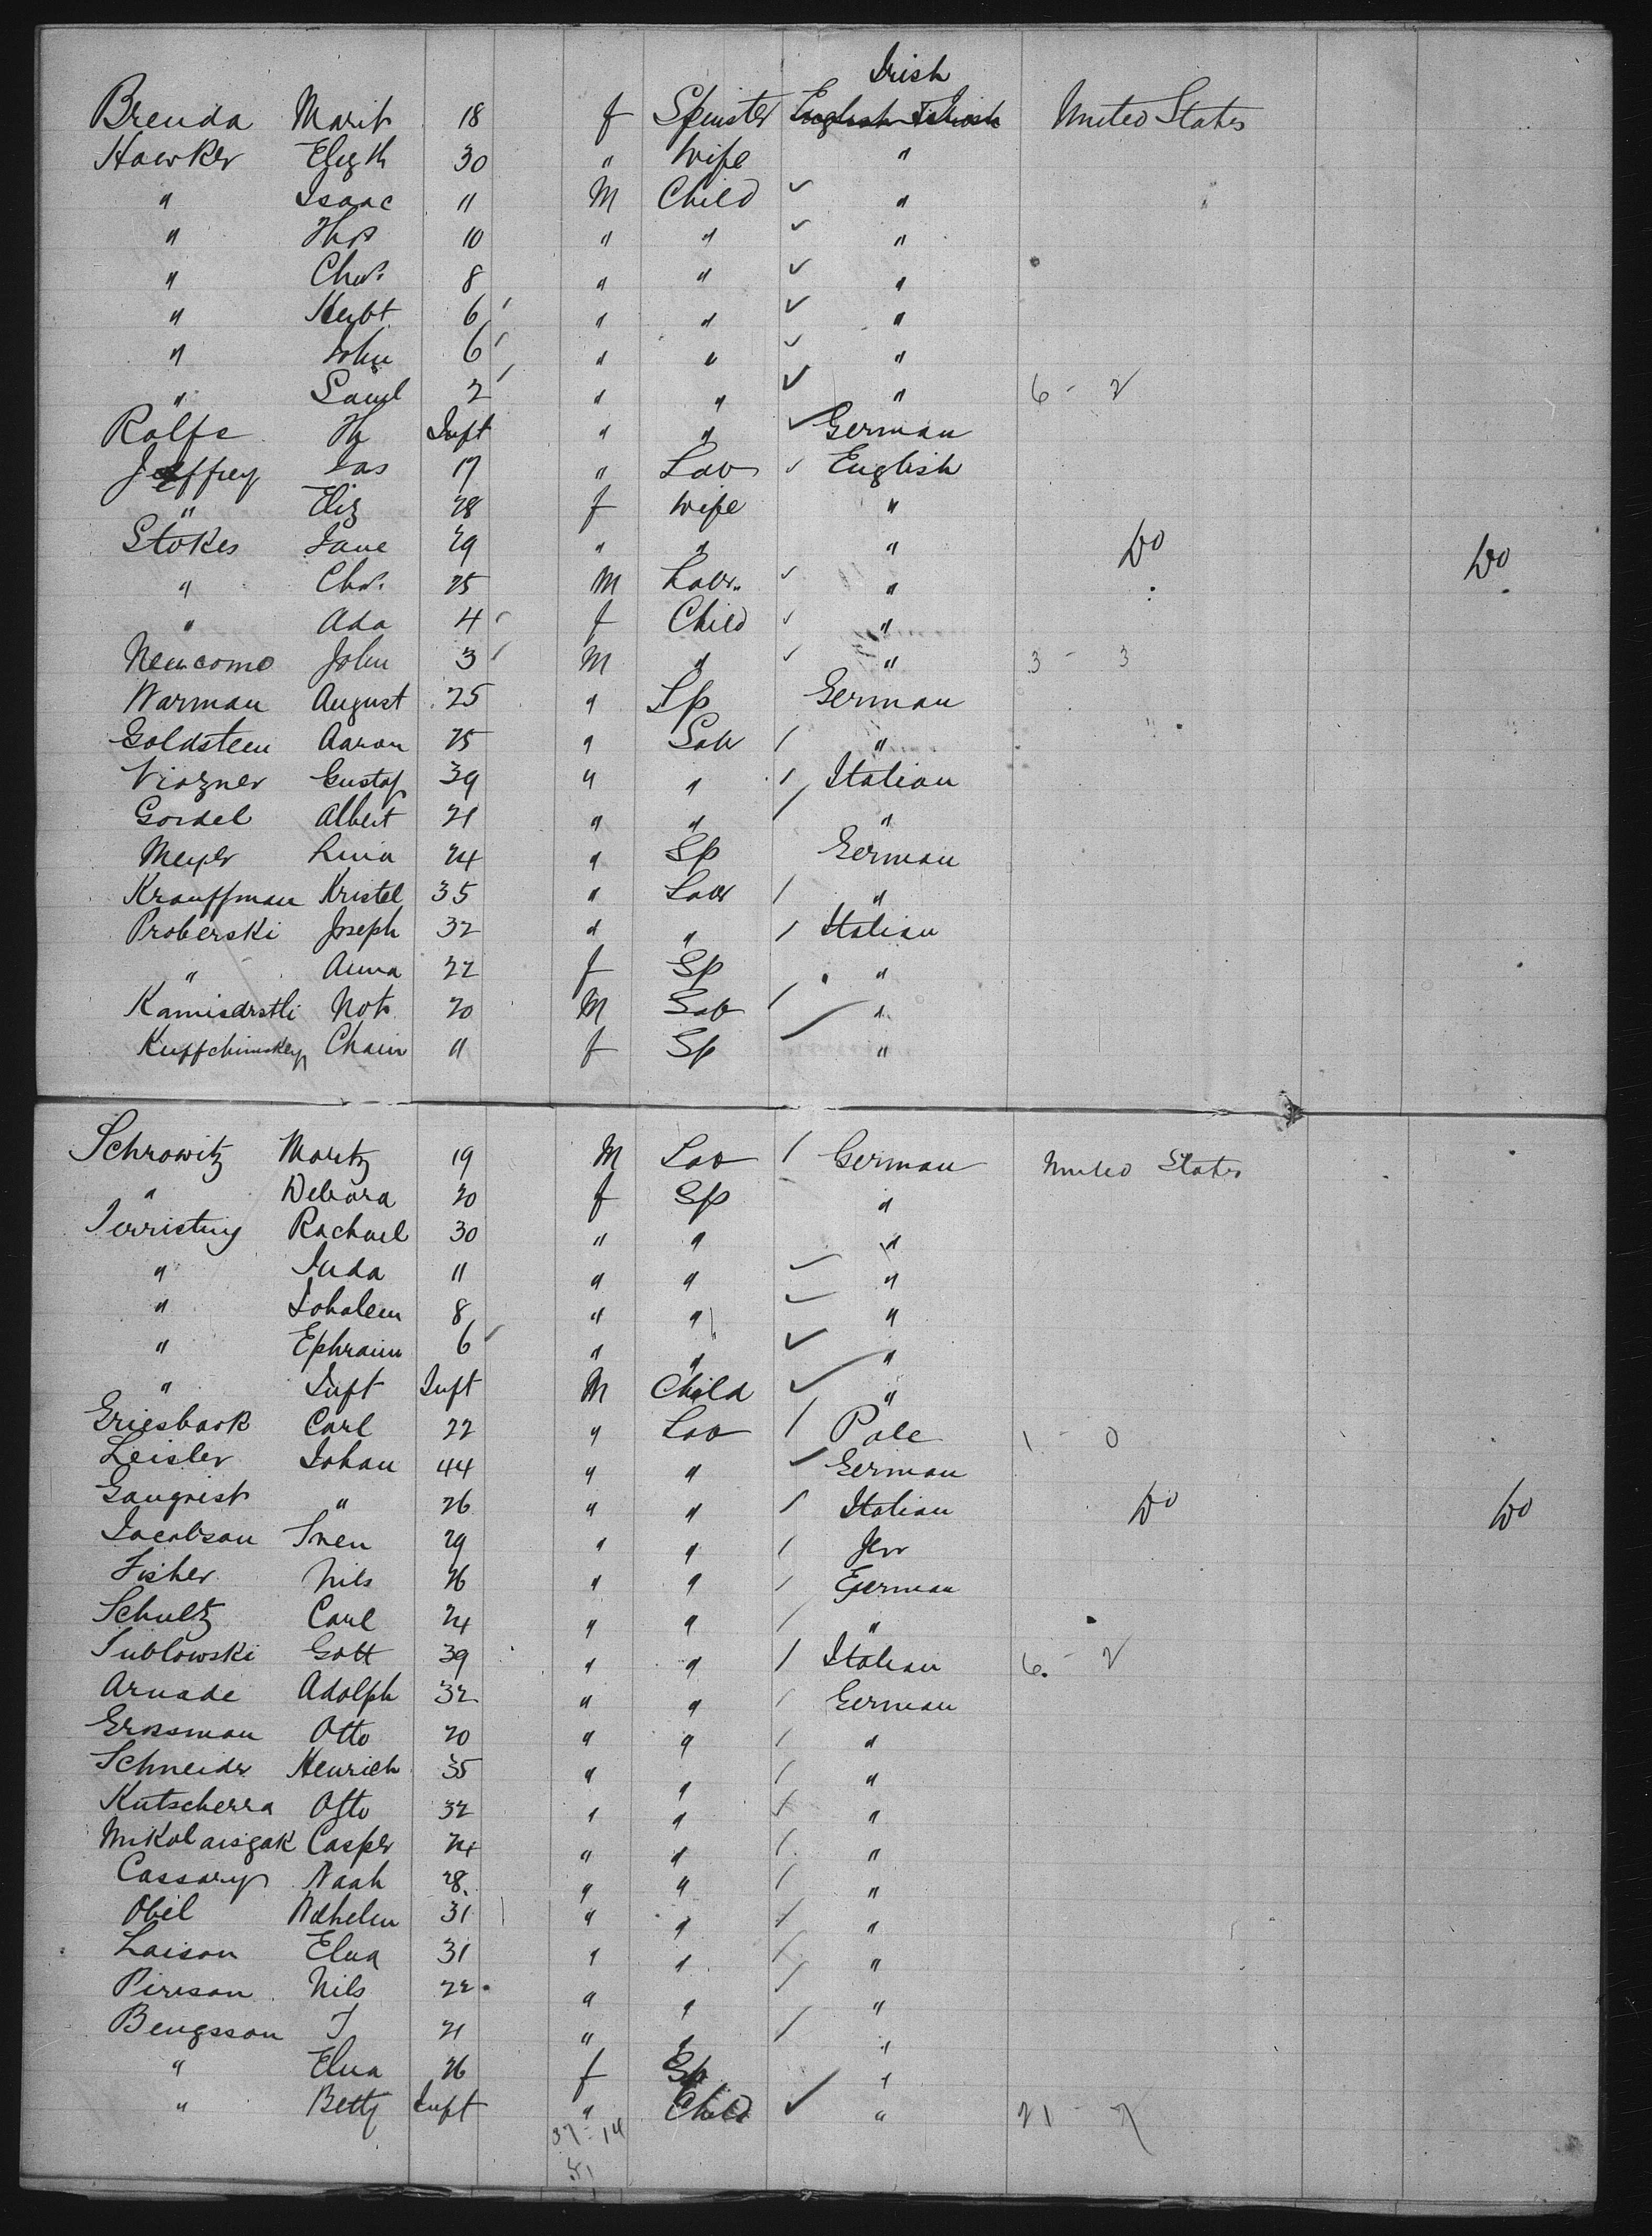 Irish
Brenda Marit 18 f Spinster English United States
Hawker Elizth 30 " Wife "
" Isaac 11 M Child ✓ "
" Thos 10 " " ✓ "
" Chas. 8 " " ✓ "
" Herbt 6 " " ✓ "
" John 6 " " ✓ "
" Saml 2 " " ✓ " 6 - 2
Rolfe Inft " " ✓ German
Jeffrey Jas 17 " Lab ✓ English
" Eliz 28 f Wife "
Stokes Jane 29 " " " Do Do
" Chas. 25 M Labr. ✓ "
" Ada 4 f Child ✓ "
Newcome John 3 M " ✓ " 3 - 3
Warman August 25 " Sp German
Goldsteen Aaron 25 " Labr / "
Viozner Gustaf 39 " " / Italian
Gordel Albert 21 " " / "
Meyer Lina 24 " Sp German
Krauffman Kristel 35 " Labr / "
Proberski Joseph 32 " " / Italian
" Anna 22 f Sp "
Kamisdrstli Not 20 M Lab / "
Kuffchinskey Chain 11 f Sp ✓ "
Schrowitz Moritz 19 M Lab / German United States
" Debora 20 f Sp "
Rachael 30 " " "
" Juda 11 " " ✓ "
" Johalem 8 " " ✓ "
" Ephraim 6 " " ✓ "
" Inft Inft M Child ✓ "
Griesback Carl 22 " Lab / Pole 1 - 0
Leisler Johan 44 " " ✓ German
Ganqrist " 26 " " / Italian Do Do
Jacobson Sven 29 " " / Jew
Fisher Nils 26 " " / German
Schultz Carl 24 " " / "
Sublowski Gott 39 " " / Italian 6 - 2
Arnade Adolph 32 " " / German
Erosman Otto 20 " " / "
Schneider Heinrich 35 " " / "
Kutscherra Otto 32 " " / "
Nikolaisgak Casper 24 " " / "
Cassary Naah 28 " " / "
Obel Wilhelm 31 " " / "
Laison Elna 31 " " / "
Pirrson Nils 22 " " / "
Bengsson J 21 " " / "
" Elna 26 f Sp "
" Betty Inft " Child ✓ " 21 - 7
37 - 14
51